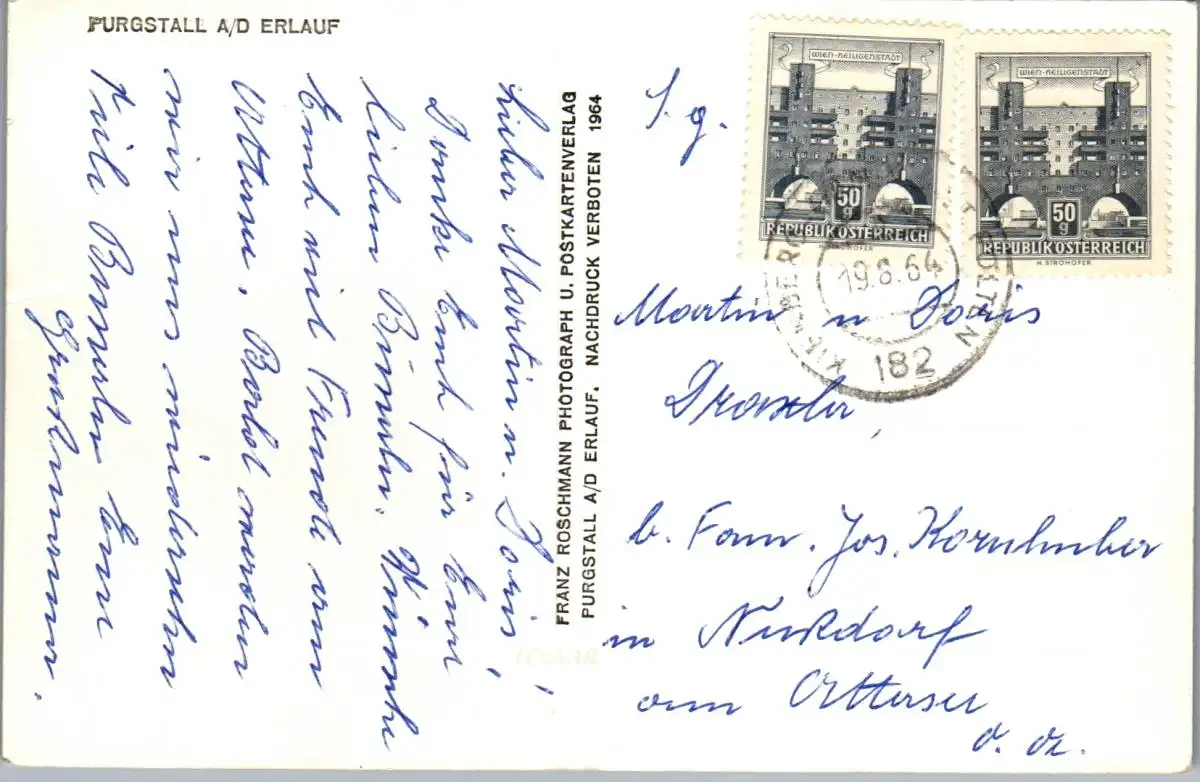 PURGSTALL A/D ERLAUF
Lieber Martin u. Doris!
Danke Euch für Eure
lieben Bilder. Wünsche
Euch viel Freude am
Attersee. Bald werden
wir uns wiedersehen
Viele Busserln Eure
FRANZ ROSCHMANN PHOTOGRAPH U. POSTKARTENVERLAG
PURGSTALL A/D ERLAUF. NACHDRUCK VERBOTEN 1964
WIEN-HEILIGENSTADT
50
g
REPUBLIK ÖSTERREICH
H. STROHOFER
WIEN-HEILIGENSTADT
50
g
REPUBLIK ÖSTERREICH
H. STROHOFER
19.8.64
182
S. g.
Martin u Doris
Draxler,
b. Fam. Jos. Kornhuber
in Nußdorf
am Attersee
O. Ö.